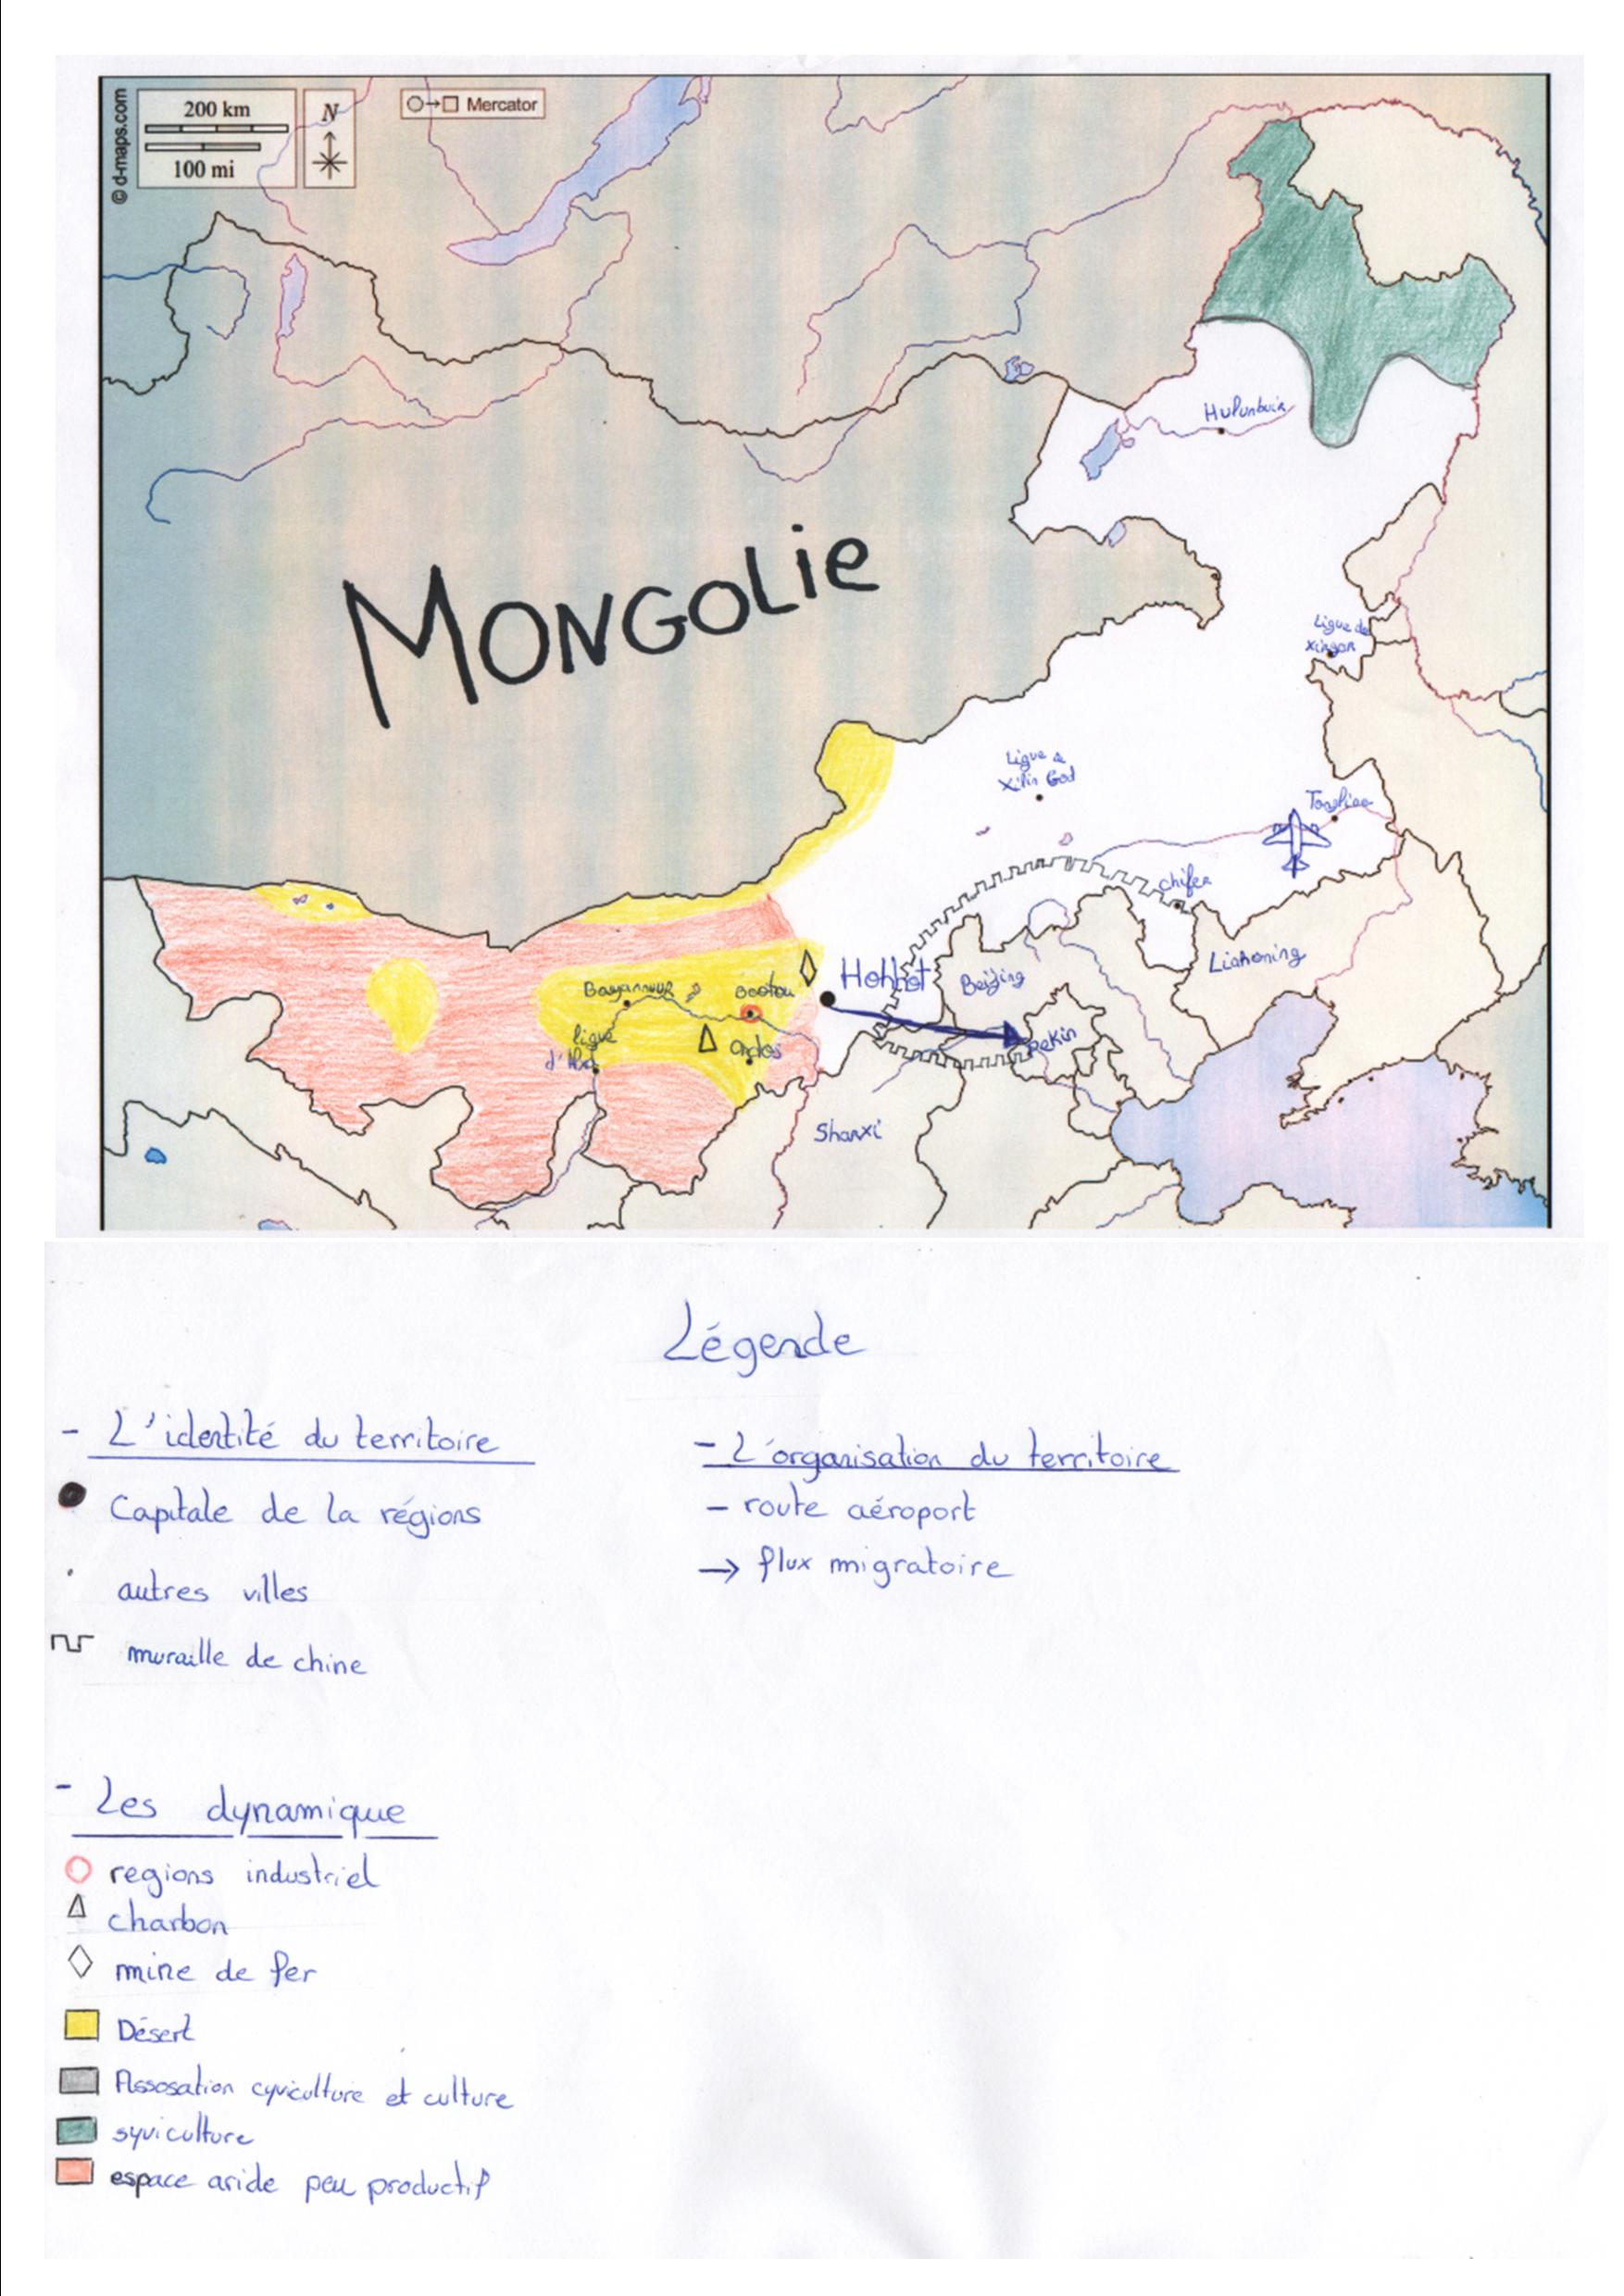 © d-maps.com
200 km
100 mi
N
Mercator
MONGOLie
Hulunbuir
Ligue de
Xingan
Ligue de
Xilin God
Tongliao
chifer
Liahoning
Hohhot
Beijing
Pekin
Bayannuur
Baotou
ligue
d'Alxa
Ordos
Shanxi
Légende
- L'identité du territoire
Capitale de la régions
autres villes
muraille de chine
- L'organisation du territoire
- route aéroport
→ flux migratoire
- Les dynamique
regions industriel
charbon
mine de fer
Désert
Assosation cyviculture et culture
syviculture
espace aride peu productif